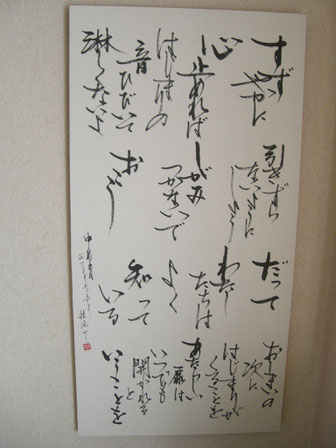 すず
やかに
心
止めれば
はじまりの
音ひびいて
淋しくないよ
引きずら
ないように
しよう
しがみ
つかないで
おこう
だって
わたし
たちは
よく
知って
いる
おしまいの
次に
はじまりが
くることを
あたらしい
扉は
いつでも
開かれる
と
いうことを